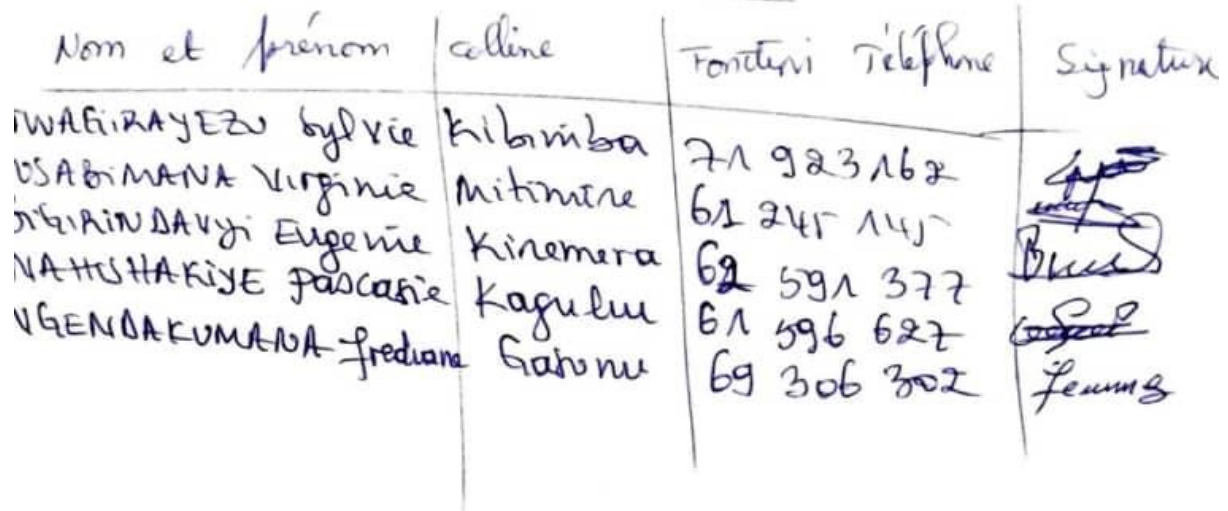 Nom et prénom colline Fonction Téléphone Signature
WAGIRAYEZU Sylvie Kibimba 71 923 162
USABIMANA Virginie Mitimire 61 245 145
GIGIRINDAVYI Eugenie Kinemera 62 591 377
NAHISHAKIYE Pascasie Kagulu 61 596 627
NGENDAKUMANA frediane Gatonu 69 306 302